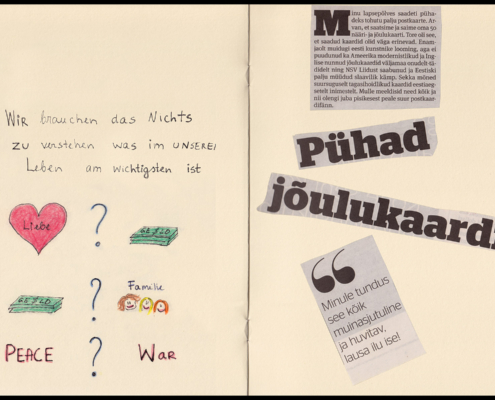 Wir brauchen das Nichts
zu verstehen was im UNSEREI
Leben am wichtigsten ist
Liebe ? GELD
GELD ? Familie
PEACE ? WAR
Minu lapsepõlves saadeti püha-
deks tohutu palju postkaarte. Ar-
van, et saatsime ja saime oma 50
nääri- ja jõulukaarti. Tore oli see,
et saadud kaardid olid väga erinevad. Enam-
jaolt muidugi eesti kunstnike looming, aga ei
puudunud ka Ameerika modernistlikud ja Ing-
lise nunnud jõulukaardid väljamaa omadelt tä-
didelt ning NSV Liidust saabunud ja Eestiski
palju müüdud slaavilik kimp. Sekka mõned
suursugused tagasihoidlikud kaardid eestiaeg-
setelt inimestelt. Mulle meeldisid need kõik ja
nii olengi juba pisikesest peale suur postkaar-
difänn.
Pühad
jõulukaardi
“
Minule tundus
see kõik
muinasjutuline
ja huvitav,
lausa ilu ise!